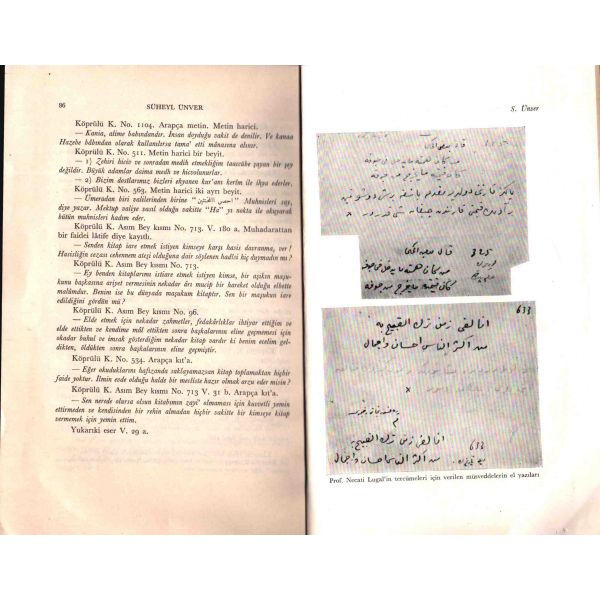 86 SÜHEYL ÜNVER
Köprülü K. No. 1104. Arapça metin. Metin harici.
— Kania, alime babındandır. İnsan doyduğu vakit de denilir. Ve kanaa
Hazebe bâbından olarak kullanılırsa tama' etti mânasına alınır.
Köprülü K. No. 511. Metin harici bir beyit.
— 1) Zehiri hiciv ve sonradan medih etmekliğim taaccübe şayan bir şey
değildir. Büyük adamlar daima medh ve hicvolunurlar.
— 2) Bizim dostlarımız bizleri ekyanen kur'anı kerim ile ihya ederler.
Köprülü K. No. 563. Metin harici iki ayrı beyit.
— Ümeradan biri valilerinden birine "احصى المخنثين" Muhnisleri say,
diye yazar. Mektup valiye vasıl olduğu vakitte "Ha" yı nokta ile okuyarak
bütün muhnisleri hadım eder.
Köprülü K. Asım Bey kısmı No. 713. V. 180 a. Muhadarattan
bir faidei lâtife diye kayıtlı.
— Senden kitap iare etmek istiyen kimseye karşı basis davranma, ver!
Hasisliğin cezası cehennem ateşi olduğuna dair söylenen hadîsi hiç duymadın mı?
Köprülü K. Asım Bey kısmı No. 713.
— Ey benden kitaplarımı istiare etmek istiyen kimse, bir aşıkın maşu-
kunu başkasına ariyet vermesinin nekadar ârı mucip bir hareket olduğu elbette
malûmdur. Benim ise bu dünyada maşukum kitaptır. Sen bir maşukun iare
edildiğini gördün mü?
Köprülü K. Asım Bey kısmı No. 96.
— Elde etmek için nekadar zahmetler, fedakârlıklar ihtiyar ettiğim ve
elde ettikten ve kendime mâl ettikten sonra başkalarının eline geçmemesi için
okadar buhul ve imsak gösterdiğim nekadar kitap vardır ki benim ecelim gel-
dikten, öldükten sonra başkalarının eline geçmiştir.
Köprülü K. No. 534. Arapça kıt'a.
— Eğer okuduklarını hafızanda saklayamazsan kitap toplamaktan hiçbir
faide yoktur. İlmin evde olduğu halde bir mecliste hazır olmak arzu eder misin?
Köprülü K. Asım Bey kısmı No. 713 V. 31 b. Arapça kıt'a.
— Sen nerede olursa olsun kitabımın zayi' olmaması için kuvvetli yemin
ettirmeden ve kendisinden bir rehin almadan hiçbir vakitte bir kimseye kitap
vermemek için yemin ettim.
Yukarıki eser V. 29 a.
S. Ünver
325
633
انا لفى زمن ترك القبيح به
من اكثر الناس احسان واجمال
انا لفى زمن ترك القبيح به
633
من اكثر الناس احسان واجمال
Prof. Necati Lugal'in tercümeleri için verilen müsveddelerin el yazıları